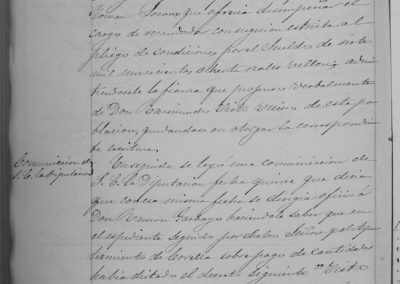 Roman Lozano que ofrecia desempeñar el
cargo de mandador con sugecion estricta al
pliego de condiciones por el sueldo de siete
mil nuevecientos ochenta reales vellon; admi
tiendosele la fianza que propuso verbalmente
de Don Raimundo Vista vecino de esta po
blacion, quedandose en otorgar la correspondien
te escritura.
Comunicacion de
S. E. la Diputacion
Enseguida se leyó una comunicacion de
S. E. la Diputacion fecha quince que decia
que con la misma fecha se dirigia oficio á
Don Ramon haciendole saber que en
el espediente seguido por dicho Señor y el Ayun
tamiento de Corella sobre pago de cantidades
habia dictado el decreto siguiente "Visto